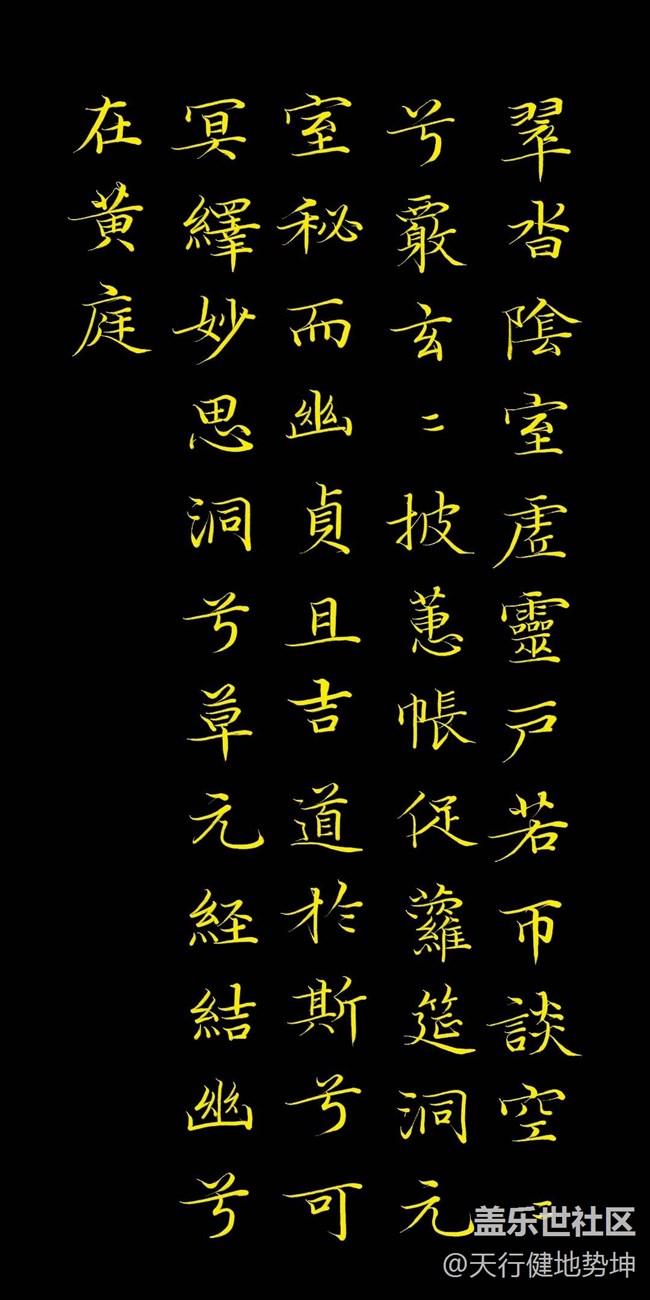 翠沓陰室虚靈戸若帀談空〻
兮覈玄〻披蕙帳促蘿筵洞元
室秘而幽貞且吉道於斯兮可
冥繹妙思洞兮草元経結幽兮
在黄庭
盖乐世社区
@天行健地势坤